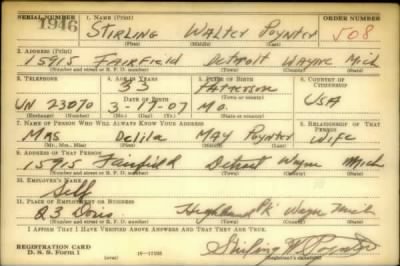 SERIAL NUMBER 1. NAME (Print) ORDER NUMBER
1946 STIRLING WALTER POYNTER 508
(First) (Middle) (Last)
2. ADDRESS (Print)
15915 FAIRFIELD DETROIT WAYNE MICH
(Number and street or R. F. D. number) (Town) (County) (State)
3. TELEPHONE 4. AGE IN YEARS 5. PLACE OF BIRTH 6. COUNTRY OF CITIZENSHIP
33 PATTERSON
(Town or county)
UN 23070 DATE OF BIRTH MO. USA
3-17-07
(Exchange) (No.) (Mo.) (Day) (Yr.) (State or country)
7. NAME OF PERSON WHO WILL ALWAYS KNOW YOUR ADDRESS 8. RELATIONSHIP OF THAT PERSON
MRS DELILA MAY POYNTER WIFE
(Mr., Mrs., Miss) (First) (Middle) (Last)
9. ADDRESS OF THAT PERSON
15915 Fairfield Detroit Wayne Mich
(Number and street or R. F. D. number) (Town) (County) (State)
10. EMPLOYER'S NAME
Self
11. PLACE OF EMPLOYMENT OR BUSINESS
23 Highland Pk Wayne Mich
(Number and street or R. F. D. number) (Town) (County) (State)
I AFFIRM THAT I HAVE VERIFIED ABOVE ANSWERS AND THAT THEY ARE TRUE.
REGISTRATION CARD
D. S. S. Form 1 Stirling W. Poynter
(Registrant's signature)